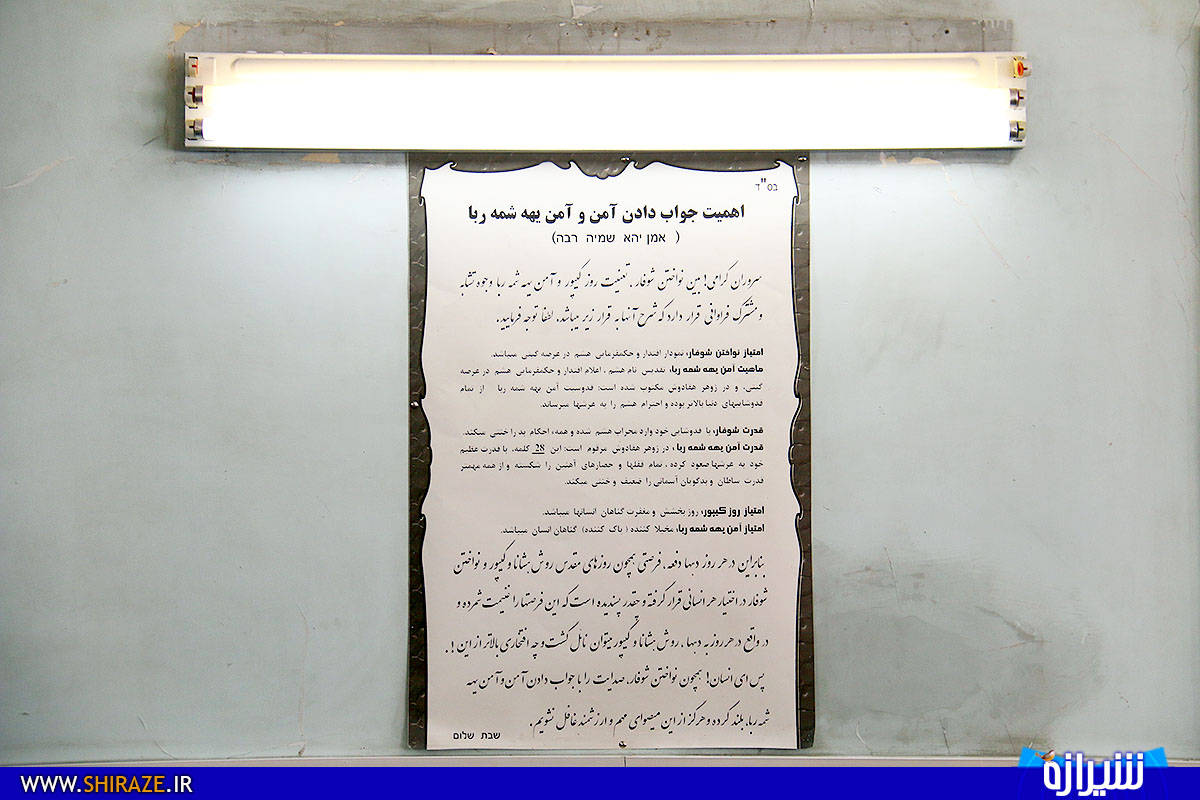 בס"ד
اهمیت جواب دادن آمن و آمن یهه شمه ربا
( אמן יהא שמיה רבה)
سروران گرامی! بین نواختن شوفار ، تعنیت روز کیپور و آمن یهه شمه ربا وجوه تشابه
و مشترک فراوانی قرار دارد که شرح آنها به قرار زیر میباشد. لطفا توجه فرمایید.
امتیاز نواختن شوفار، نمودار اقتدار و حکمفرمایی هشم در عرصه گیتی میباشد.
ماهیت آمن یهه شمه ربا، تقدیس نام هشم ، اعلام اقتدار و حکمفرمایی هشم در عرصه
گیتی، و در زوهر هقادوش مکتوب شده است: قدوسیت آمن یهه شمه ربا از تمام
قدوشاییهای دنیا بالاتر بوده و احترام هشم را به عرشها میرساند.
قدرت شوفار، با قدوشایی خود وارد محراب هشم شده و همه، احکام بد را خنثی میکند.
قدرت آمن یهه شمه ربا ، در زوهر هقادوش مرقوم است: این 28 کلمه، با قدرت عظیم
خود به عرشها صعود کرده ، تمام قفلها و حصارهای آهنین را شکسته و از همه مهمتر
قدرت ساطان و بدگویان آسمانی را ضعیف و خنثی میکند.
امتیاز روز کیپور، روز بخشش و مغفرت گناهان انسانها میباشد.
امتیاز آمن یهه شمه ربا، مخیلا کننده ( پاک کننده) گناهان انسان میباشد.
بنابراین در هر روز دهها دفعه، فرصتی همچون روزهای مقدس روش هشانا و کیپور و نواختن
شوفار در اختیار هر انسانی قرار گرفته و چقدر پسندیده است که این فرصتها را غنیمت شمرده و
در واقع در هر روز به دهها ، روش هشانا و کیپور میتوان نائل گشت و چه افتخاری بالاتر از این ! .
پس ای انسان! همچون نواختن شوفار، صدایت را با جواب دادن آمن و آمن یهه
شمه ربا، بلند کرده و هرگز از این میصوای مهم و ارزشمند غافل نشویم.
שבת שלום
WWW.SHIRAZE.IR
شیرازه